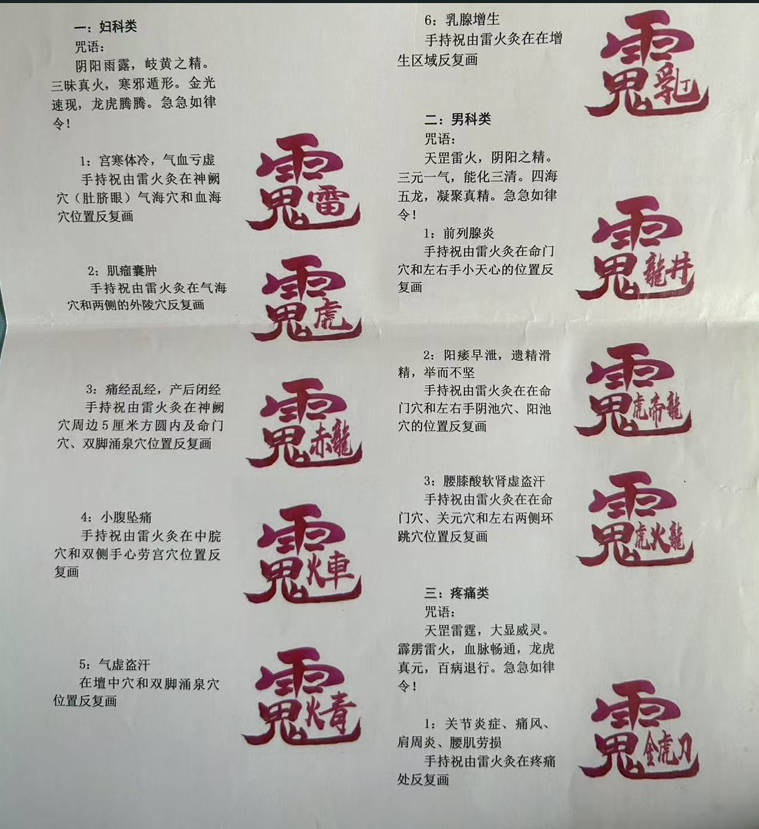 一：妇科类
咒语：
阴阳雨露，岐黄之精。
三昧真火，寒邪遁形。金光
速现，龙虎腾腾。急急如律
令！
1：宫寒体冷，气血亏虚
手持祝由雷火灸在神阙
穴（肚脐眼）气海穴和血海
穴位置反复画
雷
2：肌瘤囊肿
手持祝由雷火灸在气海
穴和两侧的外陵穴反复画
虎
3：痛经乱经，产后闭经
手持祝由雷火灸在神阙
穴周边5厘米方圆内及命门
穴、双脚涌泉穴位置反复画
赤龍
4：小腹坠痛
手持祝由雷火灸在中脘
穴和双侧手心劳宫穴位置反
复画
火車
5：气虚盗汗
在壇中穴和双脚涌泉穴
位置反复画
火青
6：乳腺增生
手持祝由雷火灸在在增
生区域反复画
乳
二：男科类
咒语：
天罡雷火，阴阳之精。
三元一气，能化三清。四海
五龙，凝聚真精。急急如律
令！
1：前列腺炎
手持祝由雷火灸在命门
穴和左右手小天心的位置反
复画
龍井
2：阳痿早泄，遗精滑
精，举而不坚
手持祝由雷火灸在在命
门穴和左右手阴池穴、阳池
穴的位置反复画
虎帝龍
3：腰膝酸软肾虚盗汗
手持祝由雷火灸在在命
门穴、关元穴和左右两侧环
跳穴位置反复画
虎火龍
三：疼痛类
咒语：
天罡雷霆，大显威灵。
霹雳雷火，血脉畅通，龙虎
真元，百病退行。急急如律
令！
1：关节炎症、痛风、
肩周炎、腰肌劳损
手持祝由雷火灸在疼痛
处反复画
金虎刀